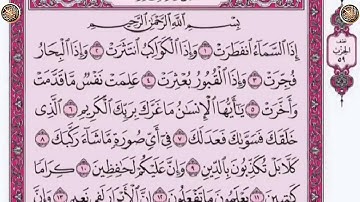 بِسْمِ اللَّهِ الرَّحْمَٰنِ الرَّحِيمِ
إِذَا السَّمَاءُ انفَطَرَتْ ١ وَإِذَا الْكَوَاكِبُ انتَثَرَتْ ٢ وَإِذَا الْبِحَارُ
فُجِّرَتْ ٣ وَإِذَا الْقُبُورُ بُعْثِرَتْ ٤ عَلِمَتْ نَفْسٌ مَّا قَدَّمَتْ
وَأَخَّرَتْ ٥ يَا أَيُّهَا الْإِنسَانُ مَا غَرَّكَ بِرَبِّكَ الْكَرِيمِ ٦ الَّذِي
خَلَقَكَ فَسَوَّاكَ فَعَدَلَكَ ٧ فِي أَيِّ صُورَةٍ مَّا شَاءَ رَكَّبَكَ ٨
كَلَّا بَلْ تُكَذِّبُونَ بِالدِّينِ ٩ وَإِنَّ عَلَيْكُمْ لَحَافِظِينَ ١٠ كِرَامًا
كَاتِبِينَ ١١ يَعْلَمُونَ مَا تَفْعَلُونَ ١٢ إِنَّ الْأَبْرَارَ لَفِي نَعِيمٍ ١٣ وَإِنَّ
الحزب
٥٩